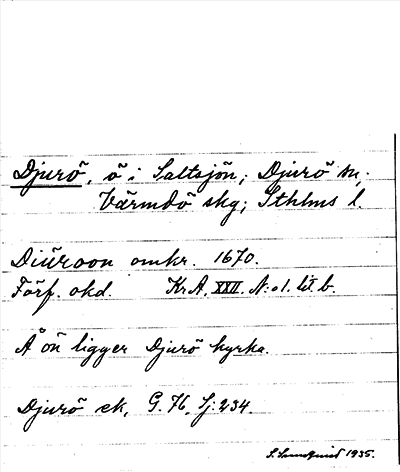 Djurö, ö i Saltsjön; Djurö sn,
Värmdö skg; Sthlms l.
Diüroon omkr. 1670.
Förf. okd. KrA. XXII. N:o 1. lit. b.
Å ön ligger Djurö kyrka.
Djurö ek, G. 76, Sj: 234.
S. Lundquist 1935.